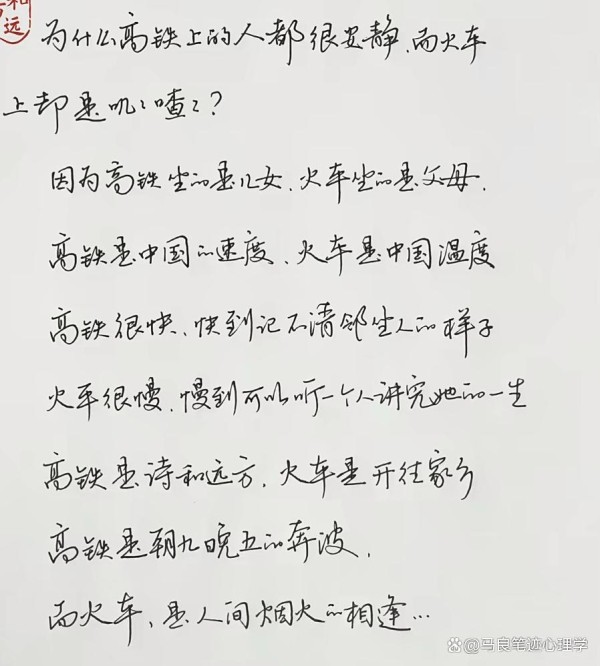 和
远
为什么高铁上的人都很安静、而火车
上却是叽叽喳喳?
因为高铁坐的是儿女、火车坐的是父母、
高铁是中国的速度、火车是中国温度
高铁很快、快到记不清邻坐人的样子
火车很慢、慢到可以听一个人讲完她的一生
高铁是诗和远方、火车是开往家乡
高铁是朝九晚五的奔波、
而火车、是人间烟火的相逢…
@马良笔迹心理学